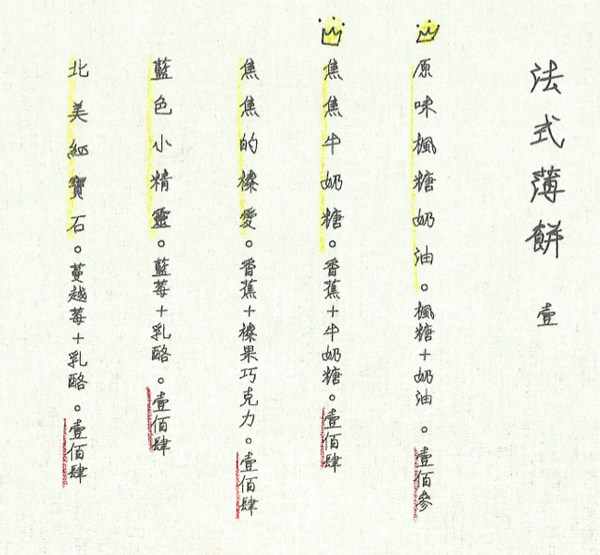 法式薄餅 壹
原味楓糖奶油。楓糖+奶油。壹佰參
焦焦牛奶糖。香蕉+牛奶糖。壹佰肆
焦焦的榛愛。香蕉+榛果巧克力。壹佰肆
藍色小精靈。藍莓+乳酪。壹佰肆
北美紅寶石。蔓越莓+乳酪。壹佰肆